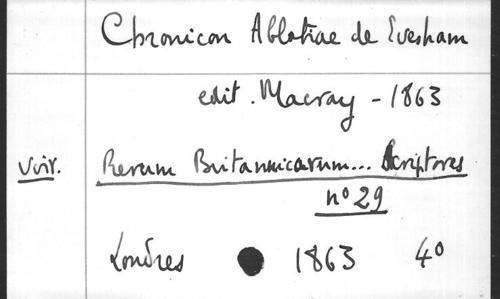 Chronicon Abbatiae de Evesham
edit. Macray - 1863
Voir. Rerum Britannicarum... Scriptores
nº 29
Londres 1863 4º